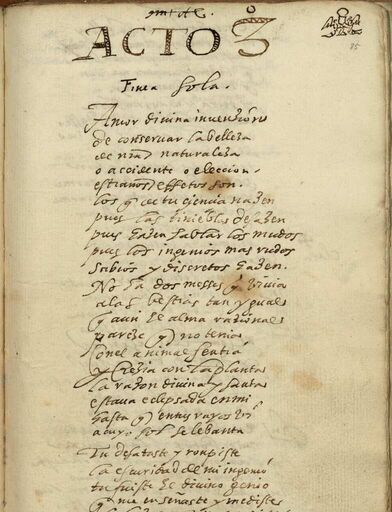 ACTO 3
Finea sola.
Amor divina invenzion
de conseruar la belleza
de nr̃a naturaleza
o accidente o eleccion,
estraños effetos son.
los q̃ de tu ciencia nazen
pues las tinieblas deshazen
pues hazen hablar los mudos
pues los ingenios mas rudos
sabios y discretos hazen.
No ha dos messes q̃ viuia
a las bestias tan ygual
q̃ aun el alma razional
pareze q̃ no tenia
con el animal sentia
y crezia con la planta
la razon diuina y santa
estaua eclepsada en mi
hasta q̃ en tus rayos vi
a cuyo sol se lebanta
Tu desataste y ronpiste
la escuridad de mi ingenio
tu fuiste el divino genio
q̃ me enseñaste y me diste